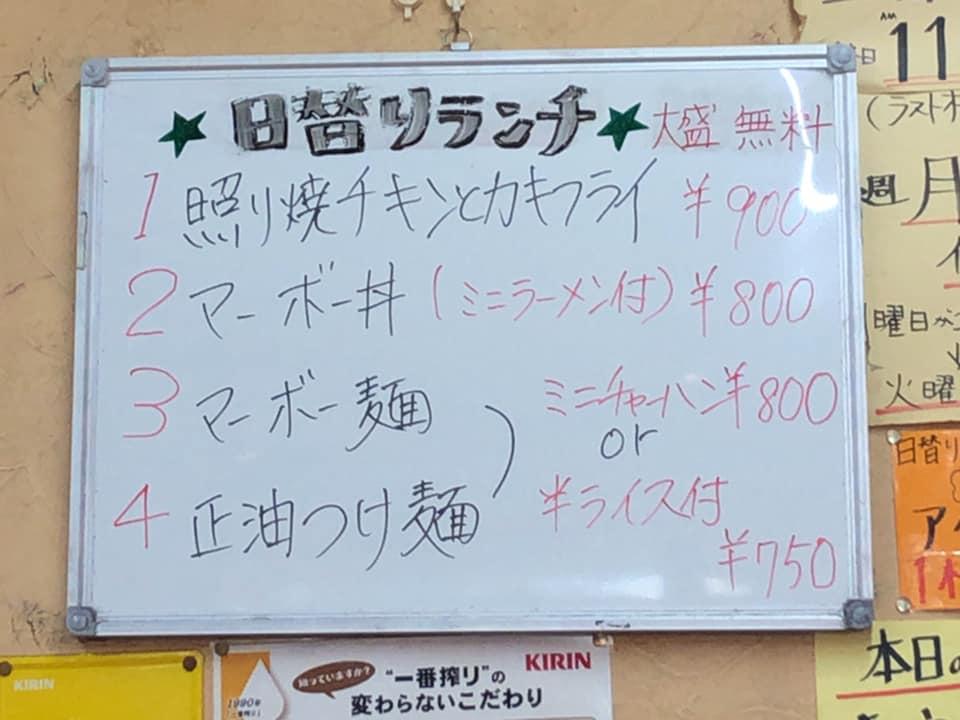 ★日替りランチ★ 大盛 無料
1 照り焼チキンとカキフライ ¥900
2 マーボー丼(ミニラーメン付) ¥800
3 マーボー麺 ミニチャーハン ¥800
or
4 正油つけ麺 半ライス付
¥750
AM 11
(ラスト
週 月
曜日が
火曜
日替り
本日
KIRIN
知っていますか?
"一番搾り"の
変わらないこだわり
KIRIN
1990年